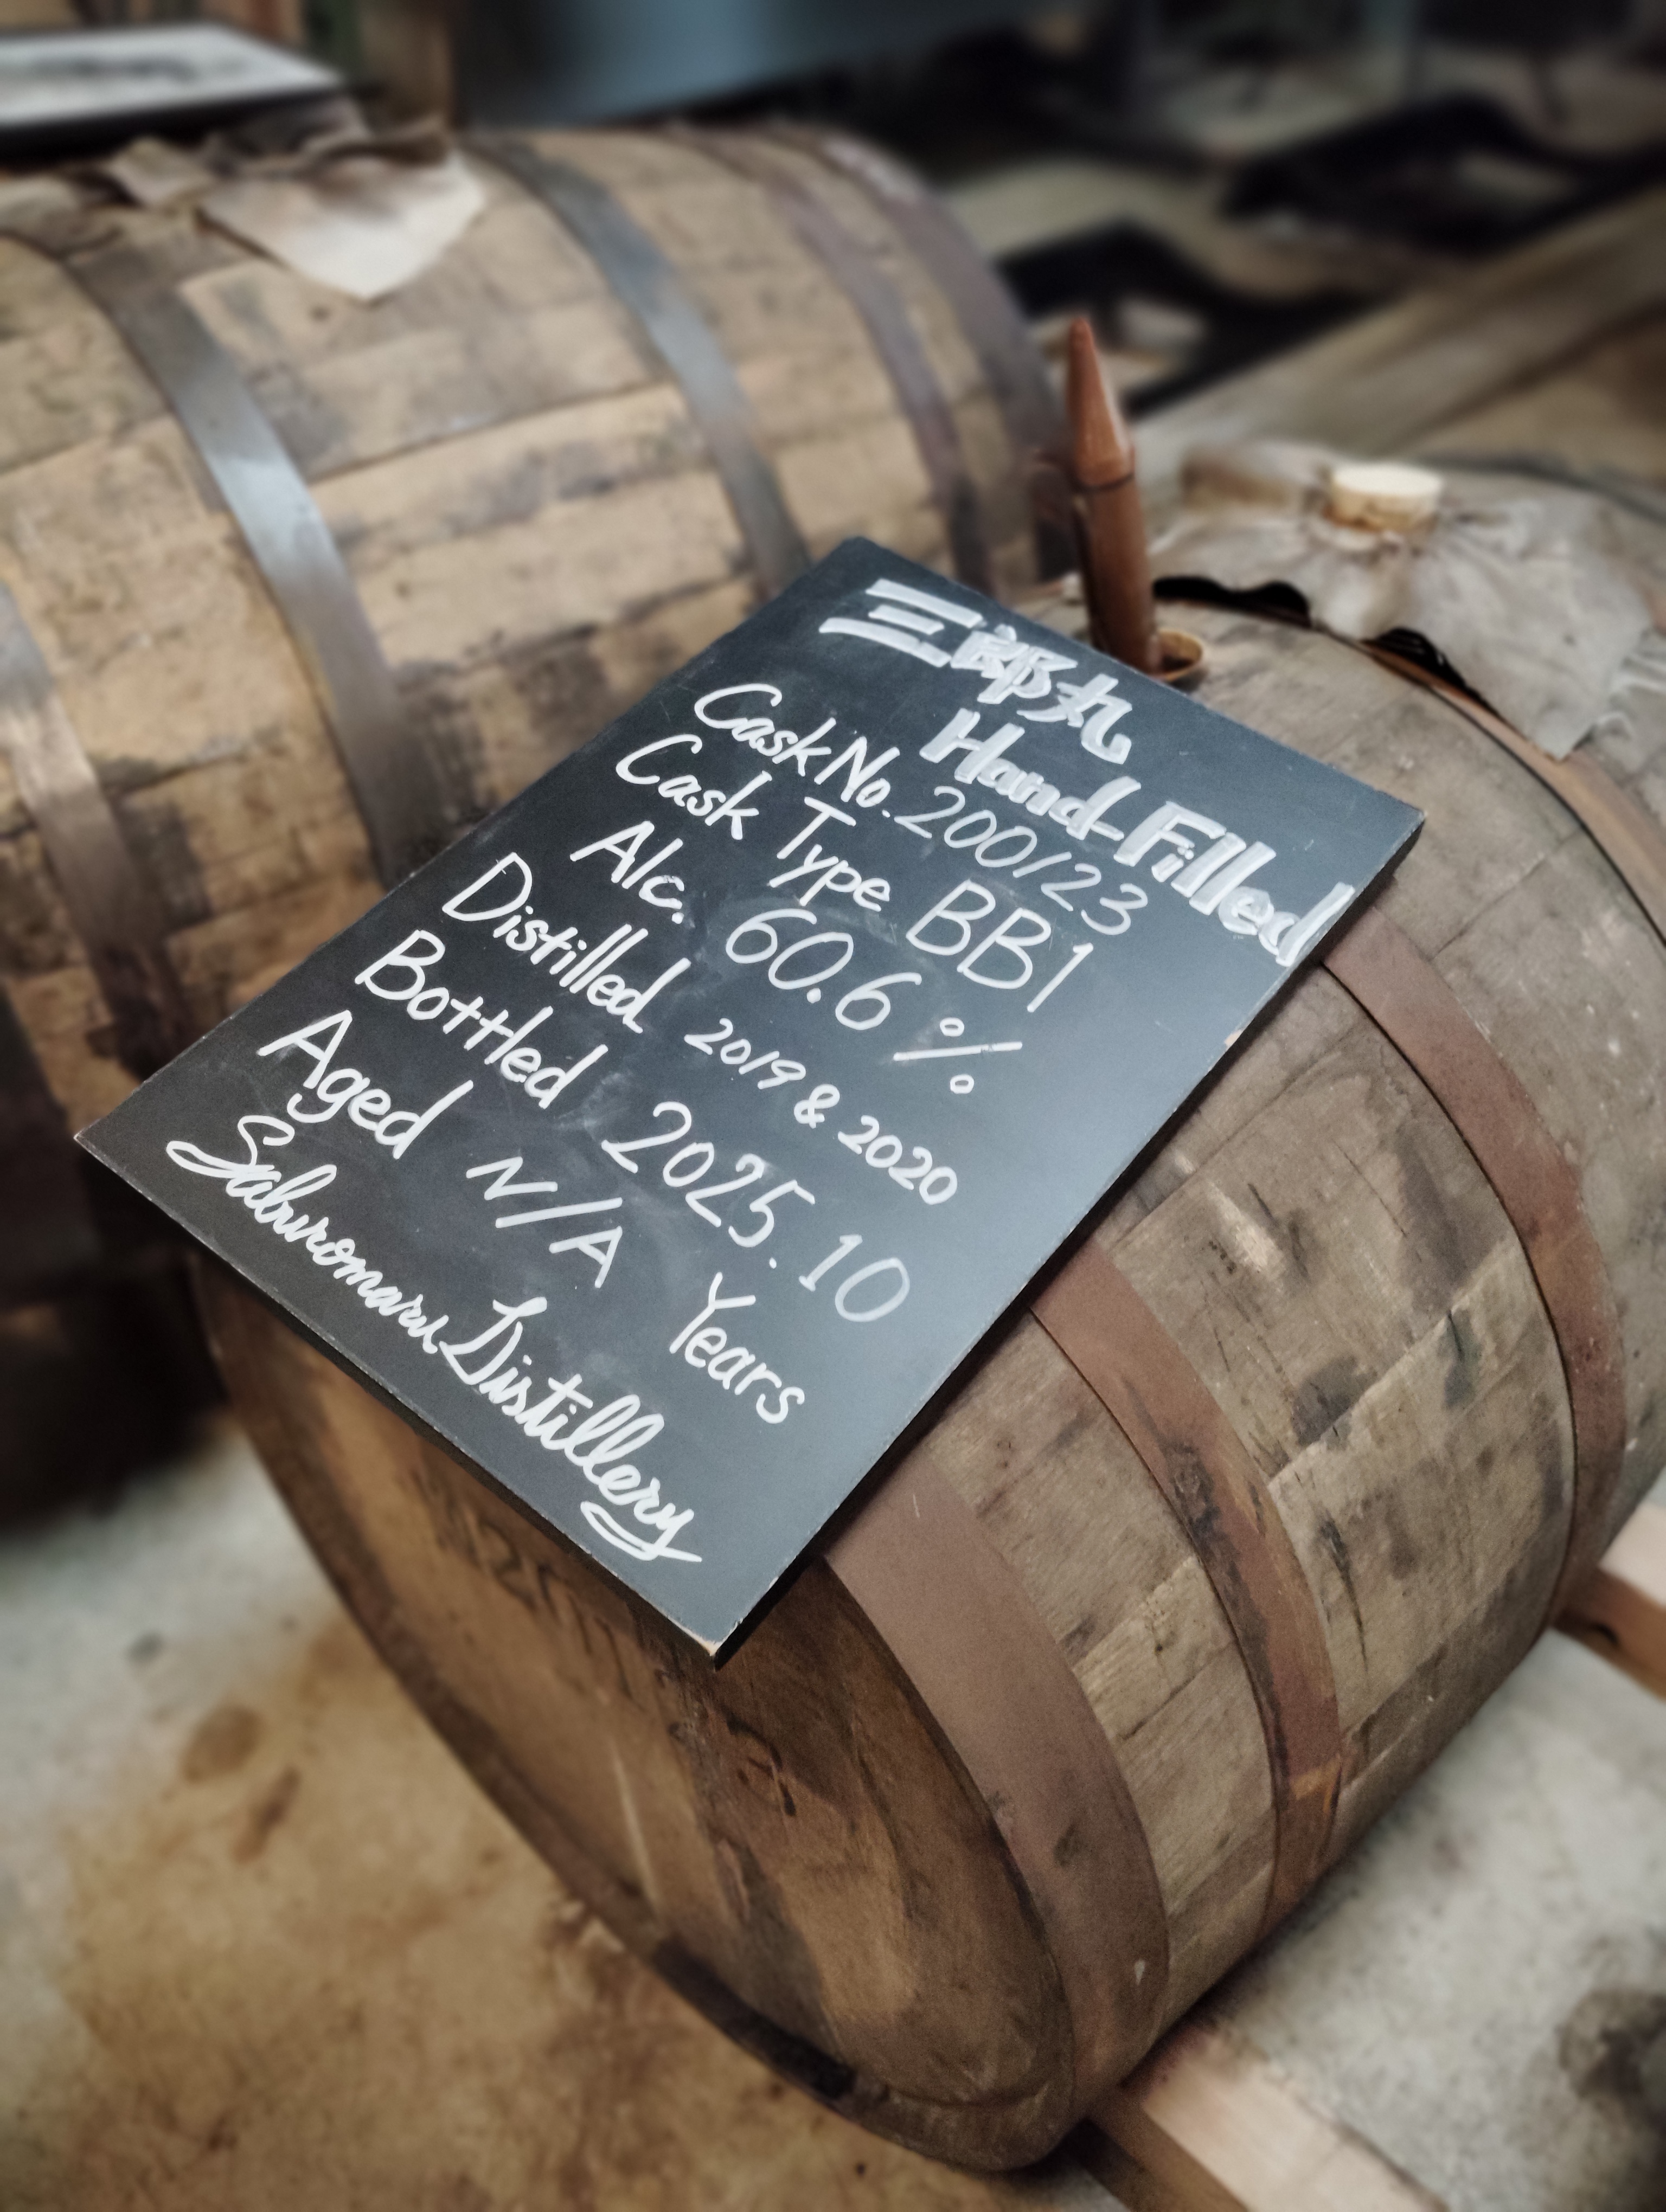 三郎丸
Hand-Filled
Cask No. 200123
Cask Type BB1
Alc. 60.6 %
Distilled 2019 & 2020
Bottled 2025.10
Aged N/A Years
Saburomaru Distillery